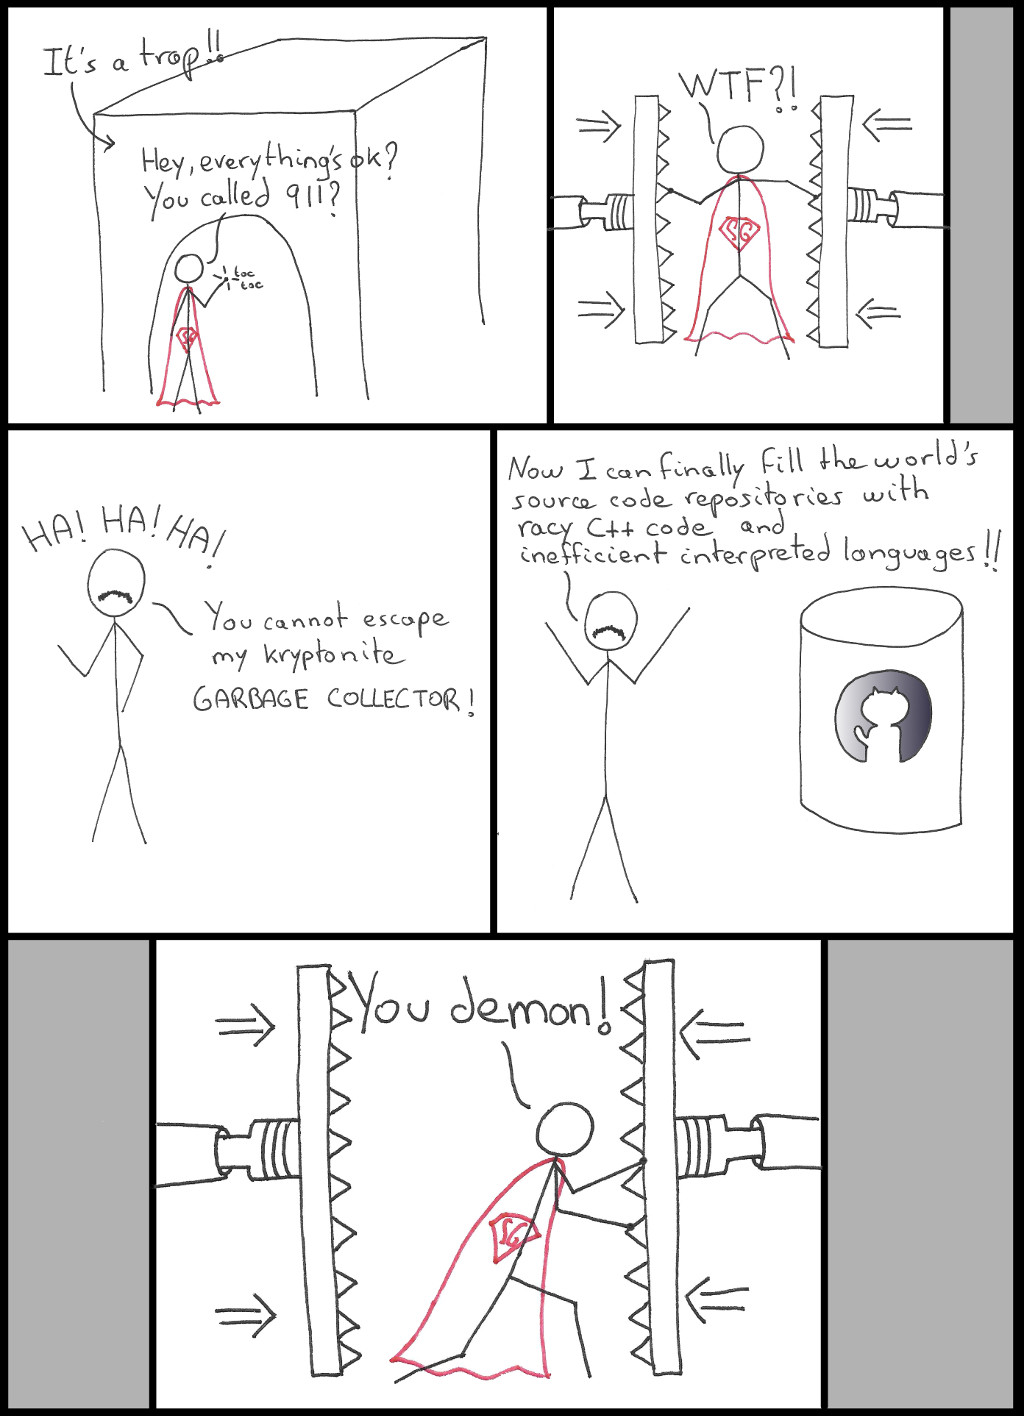 It's a trap!!
Hey, everything's ok?
You called 911?
toc
toc
SG
WTF?!
SG
HA! HA! HA!
You cannot escape
my kryptonite
GARBAGE COLLECTOR!
Now I can finally fill the world's
source code repositories with
racy C++ code and
inefficient interpreted languages!!
You demon!
SG